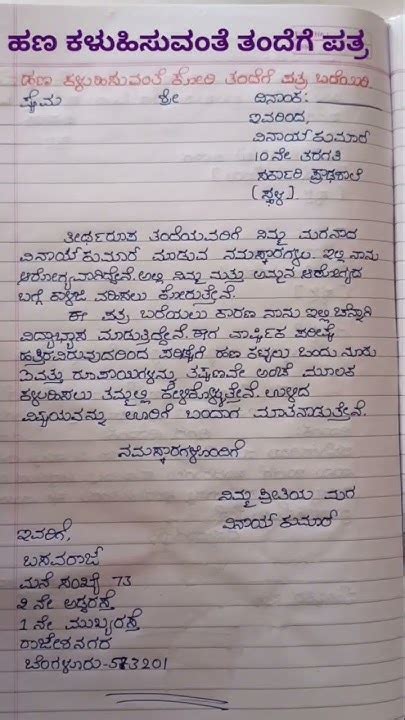 ಹಣ ಕಳುಹಿಸುವಂತೆ ತಂದೆಗೆ ಪತ್ರ
ಹಣ ಕಳುಹಿಸುವಂತೆ ಕೋರಿ ತಂದೆಗೆ ಪತ್ರ ಬರೆಯಿರಿ.
ಕ್ಷೇಮ ಶ್ರೀ ದಿನಾಂಕ:
ಇವರಿಂದ,
ವಿನಾಯ್ ಕುಮಾರ್
10ನೇ ತರಗತಿ
ಸರ್ಕಾರಿ ಪ್ರೌಢಶಾಲೆ
(ಸ್ಥಳ).
ತೀರ್ಥರೂಪ ತಂದೆಯವರಿಗೆ ನಿಮ್ಮ ಮಗನಾದ
ವಿನಾಯ್ ಕುಮಾರ್ ಮಾಡುವ ನಮಸ್ಕಾರಗಳು. ಇಲ್ಲಿ ನಾನು
ಆರೋಗ್ಯವಾಗಿದ್ದೇನೆ. ಅಲ್ಲಿ ನಿಮ್ಮ ಮತ್ತು ಅಮ್ಮನ ಆರೋಗ್ಯದ
ಬಗ್ಗೆ ಕಾಳಜಿ ವಹಿಸಲು ಕೋರುತ್ತೇನೆ.
ಈ ಪತ್ರ ಬರೆಯಲು ಕಾರಣ ನಾನು ಇಲ್ಲಿ ಚೆನ್ನಾಗಿ
ವಿದ್ಯಾಭ್ಯಾಸ ಮಾಡುತ್ತಿದ್ದೇನೆ. ಈಗ ವಾರ್ಷಿಕ ಪರೀಕ್ಷೆ
ಹತ್ತಿರವಿರುವುದರಿಂದ ಪರೀಕ್ಷೆಗೆ ಹಣ ಕಟ್ಟಲು ಒಂದು ನೂರು
ಐವತ್ತು ರೂಪಾಯಿಗಳನ್ನು ತಕ್ಷಣವೇ ಅಂಚೆ ಮೂಲಕ
ಕಳುಹಿಸಲು ತಮ್ಮಲ್ಲಿ ಕೇಳಿಕೊಳ್ಳುತ್ತೇನೆ. ಉಳಿದ
ವಿಷಯವನ್ನು ಊರಿಗೆ ಬಂದಾಗ ಮಾತನಾಡುತ್ತೇನೆ.
ನಮಸ್ಕಾರಗಳೊಂದಿಗೆ
ನಿಮ್ಮ ಪ್ರೀತಿಯ ಮಗ
ವಿನಾಯ್ ಕುಮಾರ್
ಇವರಿಗೆ,
ಬಸವರಾಜ್
ಮನೆ ಸಂಖ್ಯೆ 73
2 ನೇ ಅಡ್ಡರಸ್ತೆ
1 ನೇ ಮುಖ್ಯರಸ್ತೆ
ರಾಜೇಶನಗರ
ಬೆಂಗಳೂರು-573201